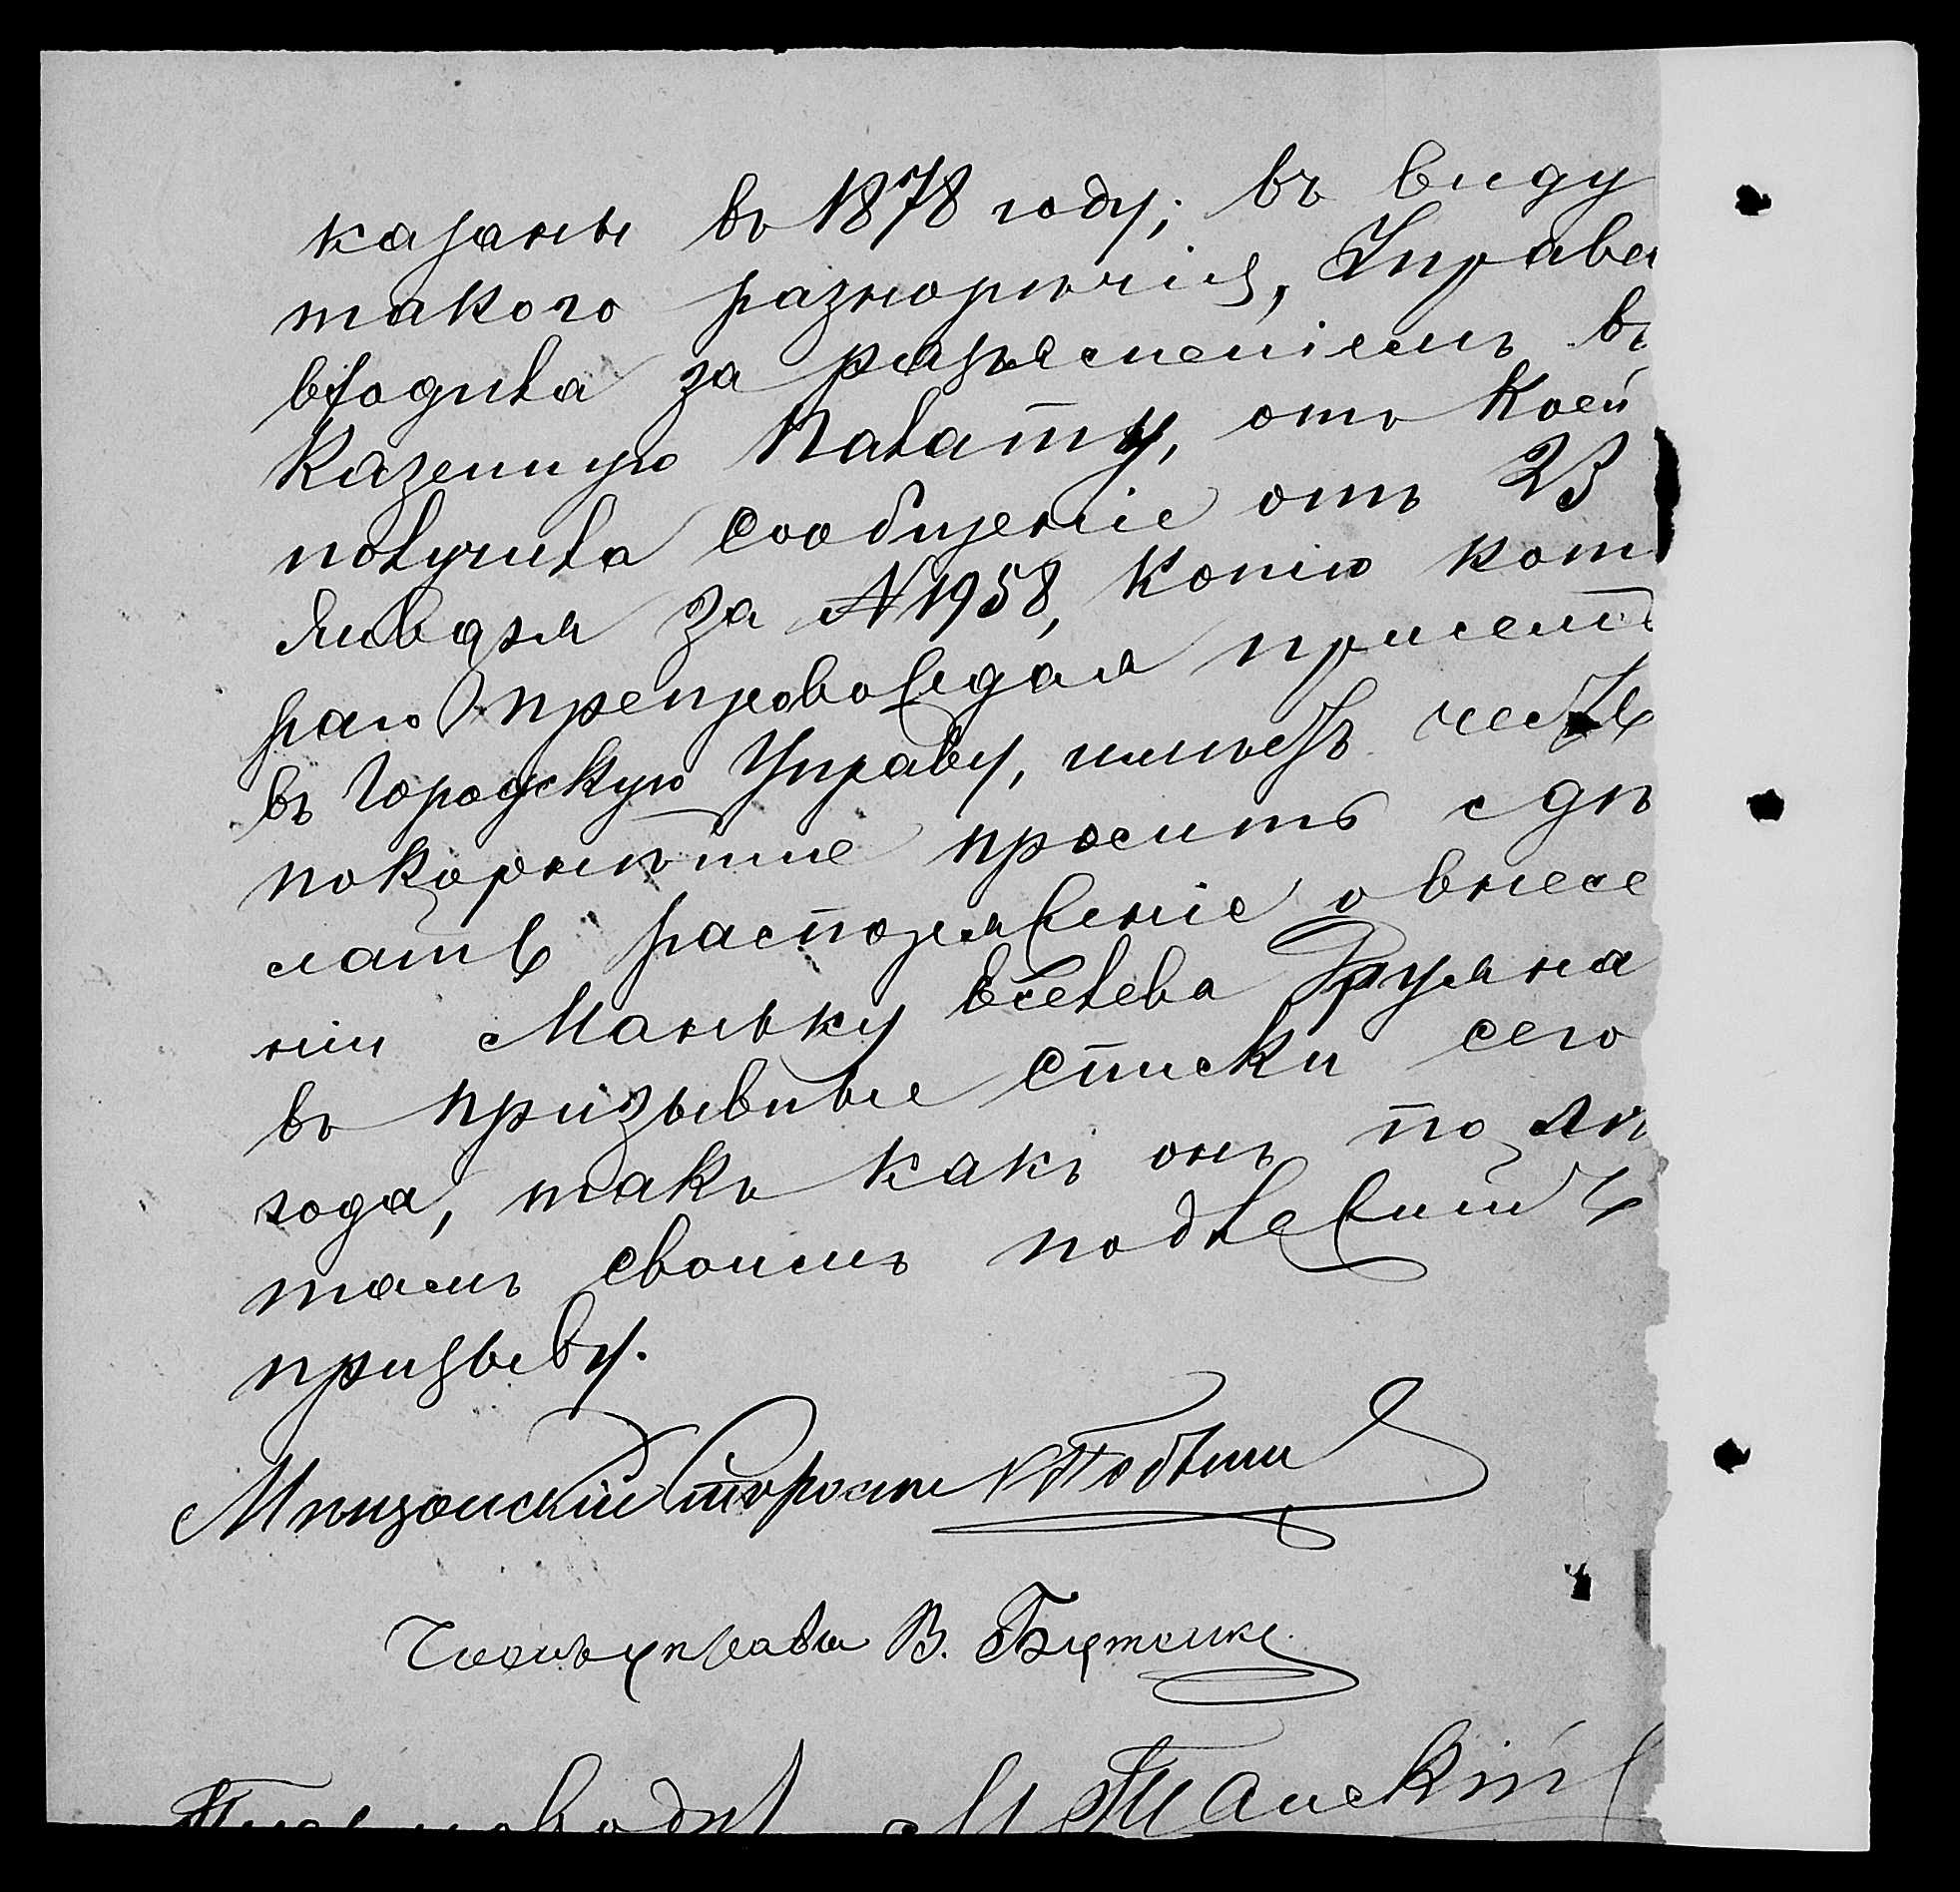 казаны въ 1878 году; въ виду
такого разноречія, Управа
входила за разъясненіемъ въ
Казенную Палату, отъ коей
получила сообщеніе отъ 23
Января за № 1958, копію кото
раго препровождая при семъ
въ Городскую Управу, имѣетъ честь
покорнѣйше просить сдѣ
лать распоряженіе о внесе
ніи Маньку
въ призывные списки сего
года, такъ какъ онъ по лѣ
тамъ своимъ подлежитъ
призыву.
Мѣщанскій Староста
Членъ управы В. Бутенко
Письмоводит М